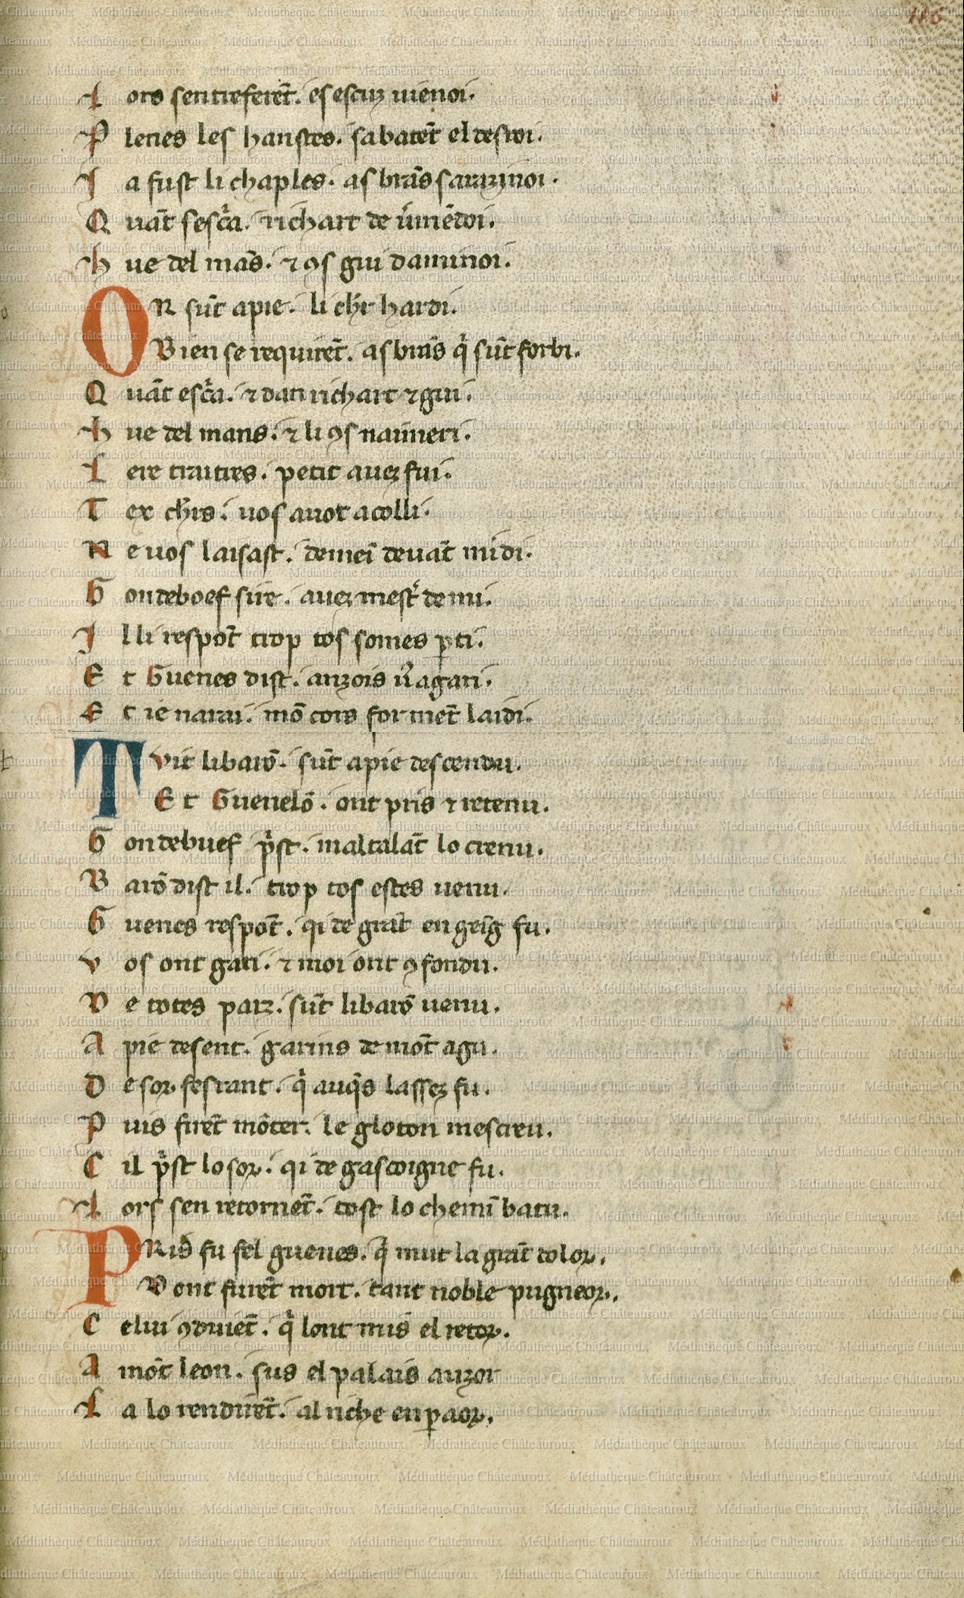 116
L ors sentreferẽt. es escuz uienoi.
P leues les hanstes. sabatẽt el destroi.
J a fust li chaples. as brãs sarazinoi.
Q uãt sescͣa. richart de ũmẽdoi.
h ue del mãs. ⁊ ꝯs gui daminoi.
O R sũt apie. li chr̃ hardi.
B ien se requirẽt. as brãs q̃ sũt forbi.
Q uãt escͣa. ⁊ dan richart ⁊ gui.
h ue del mans. ⁊ li ꝯs naimeri.
L ere traitres. petit auez fui.
T ex chr̃s. uos auot acolli.
N e uos laisast. demeĩ deuãt midi.
G ondeboef sire. auez mest̃ de mi.
J l li respõt trop tos somes ꝑti.
E t Guenes dist. anzois ũ agari.
E t ie narai. mõ cors formẽt laidi.
T vit li barõ. sũt apie descendu.
E t Guenelõ. ont pris ⁊ retenu.
G ondebuef p̃st. maltalãt lo crenu.
B arõ dist il. trop tos estes uenu.
G uenes respõt. qi de grãt engeĩg fu.
v os ont gari. ⁊ moi ont ꝯfondu.
D e totes parz. sũt li barõ uenu.
A pie desent. garins de mõt agu.
D esor fesrant. q̃ auq̃s lassez fu.
P uis firẽt mõter. le gloton mescreu.
C il p̃st lo sor. qi de gascoigne fu.
L ors sen retornẽt. tost lo chemĩ batu.
P Ris fu fel guenes. q̃ mut la grãt dolor.
D ont furẽt mort. tant noble pugneor.
C elui ꝯduiẽt. q̃ lont mis el retor.
A mõt leon. sus el palais auzor
L a lo rendirẽt. al riche enpaor.